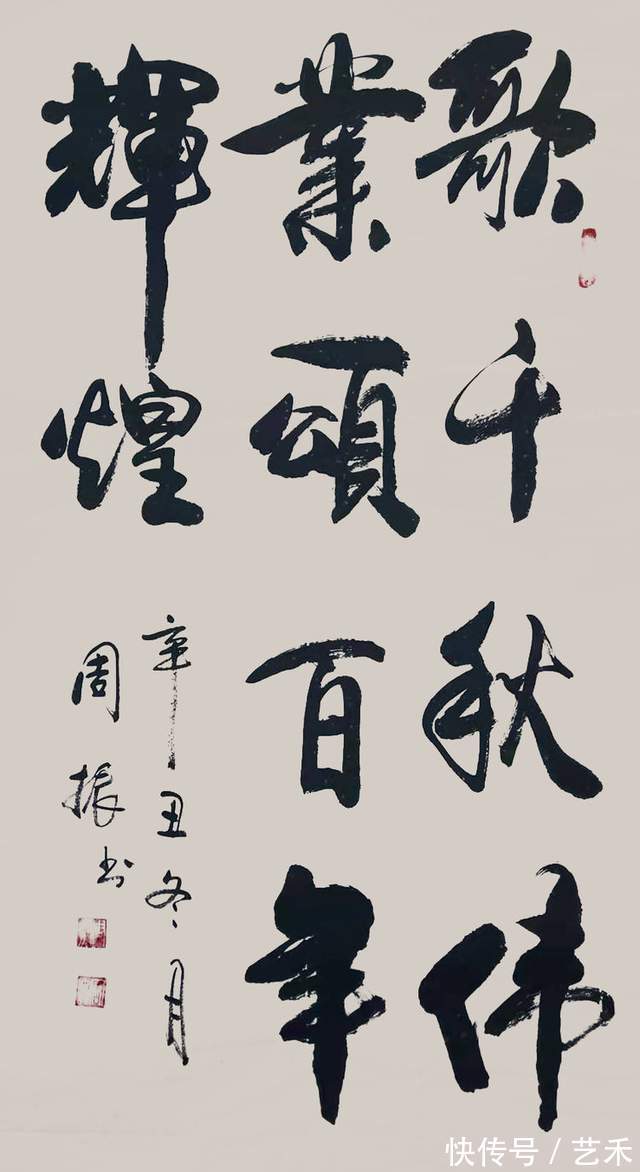 歌千秋伟
業頌百年
輝煌
辛丑冬月
周振书
快传号/艺禾